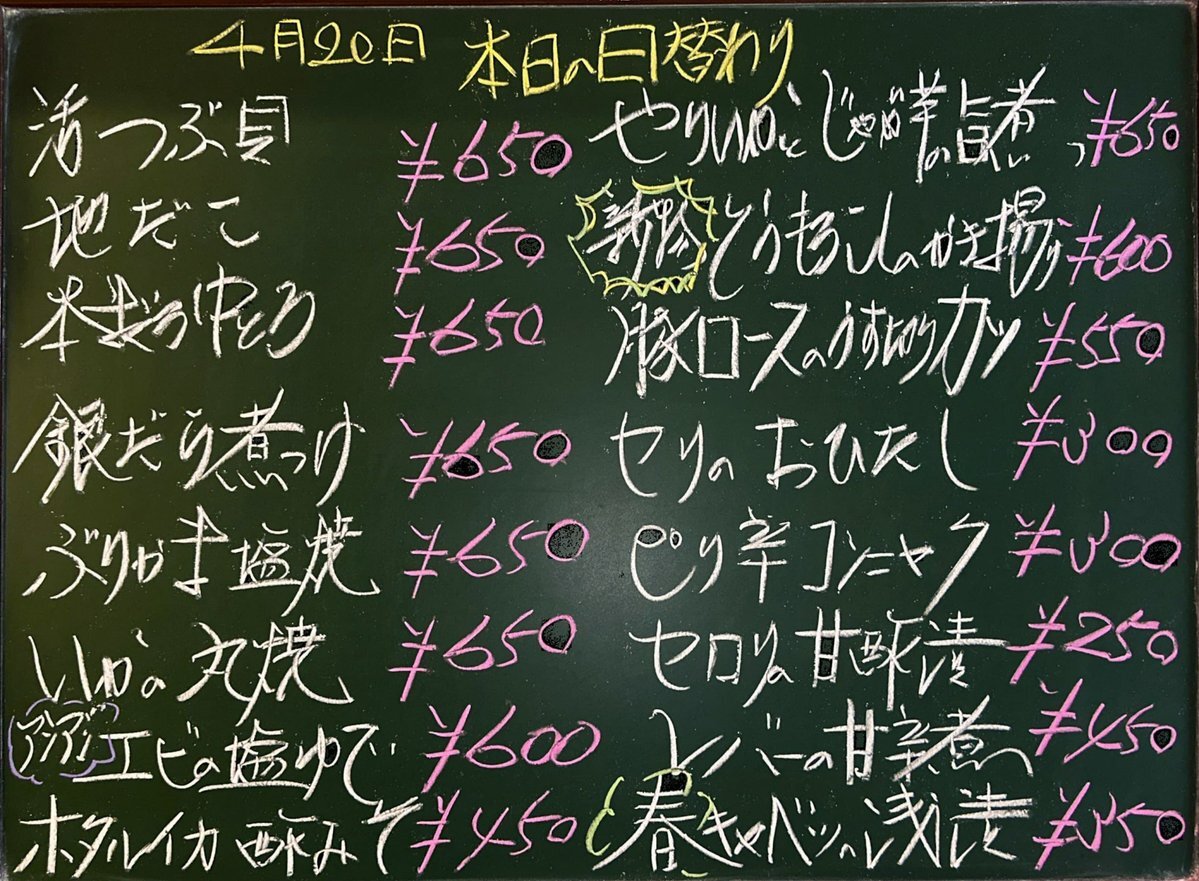 4月20日 本日の日替わり
活つぶ貝 ¥650
地だこ ¥650
本まぐろ中とろ ¥650
銀だら煮つけ ¥650
ぶりかま塩焼 ¥650
いかの丸焼 ¥650
エビの塩ゆで ¥600
ホタルイカ酢みそ ¥450
やりいかとじゃが芋の旨煮 ¥650
とうもろこしのかき揚げ ¥600
豚ロースのうす切りカツ ¥550
セリのおひたし ¥300
ピリ辛コンニャク ¥300
セロリの甘酢漬 ¥250
レバーの甘辛煮 ¥450
春キャベツの浅漬 ¥350